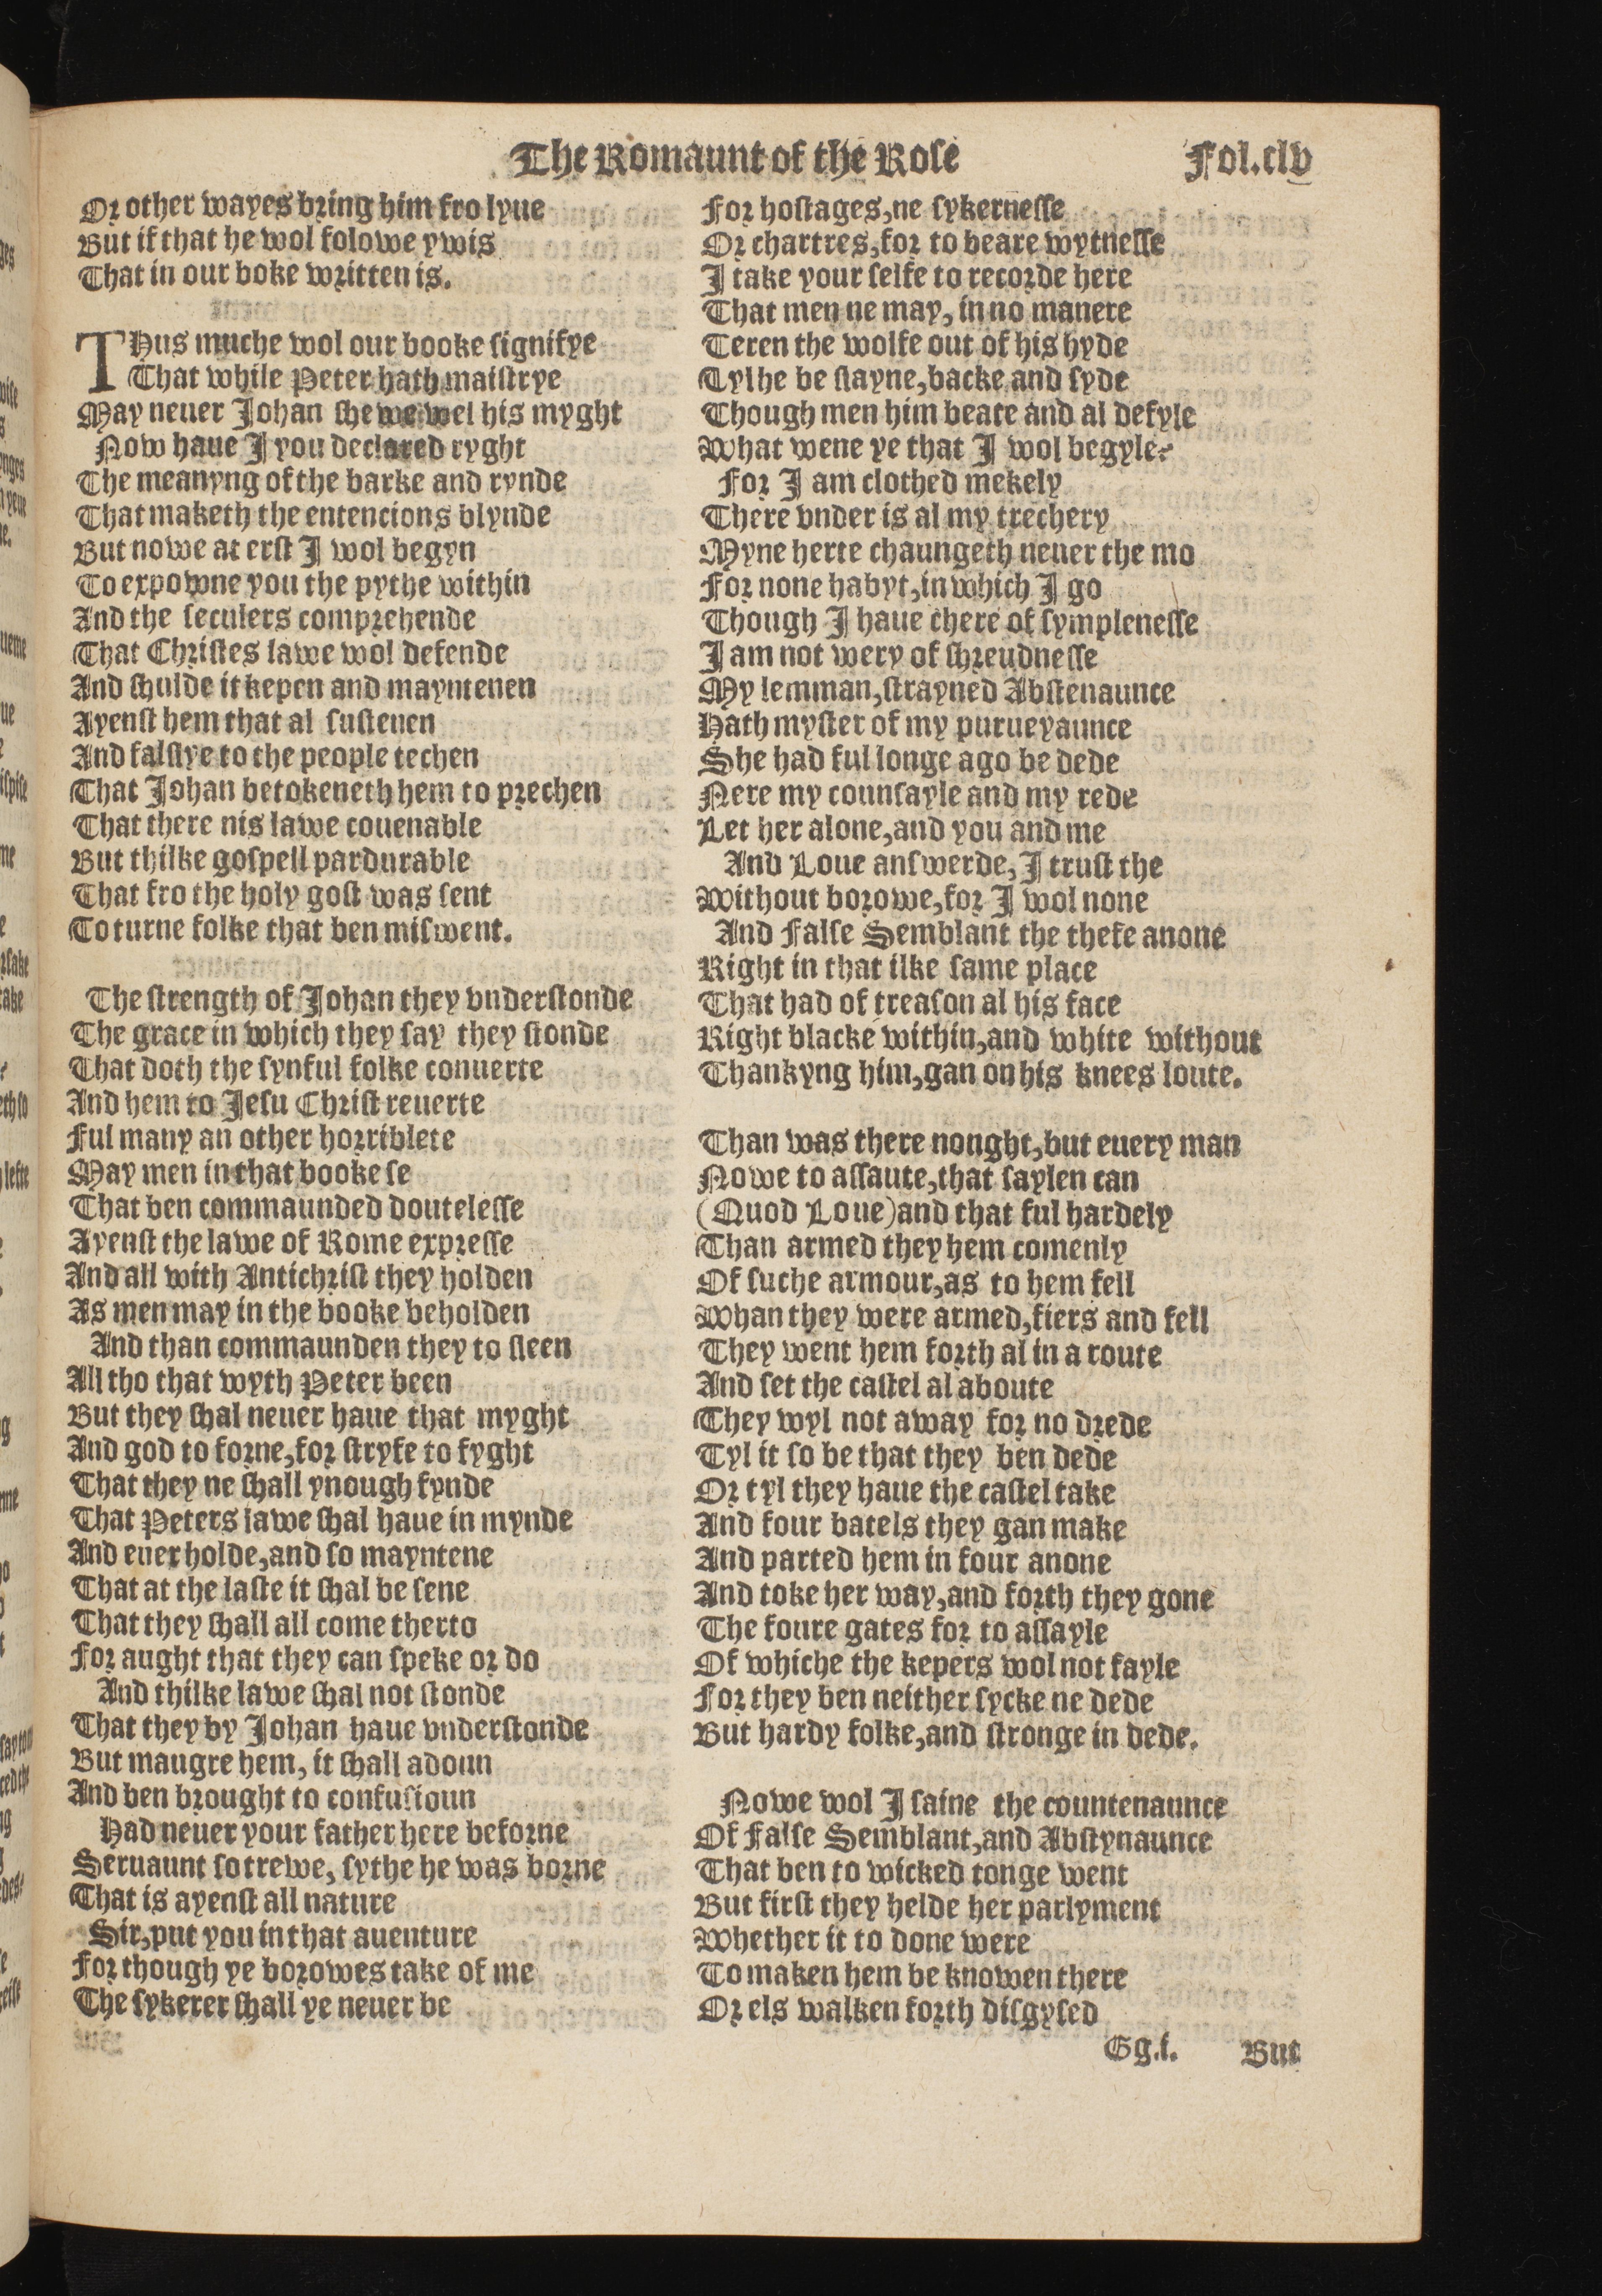 The Romaunt of the Rose
Fol.clv
Or other wayes bring him fro lyue
But if that he wol folowe ywis
That in our boke written is.
THus muche wol our booke signifye
That while Peter hath maistrye
May neuer Johan shewe wel his myght
Now haue I you declared ryght
The meanyng of the barke and rynde
That maketh the entencions blynde
But nowe at erst I wol begyn
To expowne you the pythe within
And the seculers comprehende
That Christes lawe wol defende
And shulde it kepen and mayntenen
Ayenst hem that al sustenen
And falslye to the people techen
That Johan betokeneth hem to prechen
That there nis lawe couenable
But thilke gospell pardurable
That fro the holy gost was sent
To turne folke that ben miswent.
The strength of Johan they vnderstonde
The grace in which they say they stonde
That doth the synful folke conuerte
And hem to Jesu Christ reuerte
Ful many an other horriblete
May men in that booke se
That ben commaunded doutelesse
Ayenst the lawe of Rome expresse
And all with Antichrist they holden
As men may in the booke beholden
And than commaunden they to sleen
All tho that wyth Peter been
But they shal neuer haue that myght
And god to forne, for stryfe to fyght
That they ne shall ynough fynde
That Peters lawe shal haue in mynde
And euer holde, and so mayntene
That at the laste it shal be sene
That they shall all come therto
For aught that they can speke or do
And thilke lawe shal not stonde
That they by Johan haue vnderstonde
But maugre hem, it shall adoun
And ben brought to confusioun
Had neuer your father here beforne
Seruaunt so trewe, sythe he was borne
That is ayenst all nature
Sir, put you in that auenture
For though ye borowes take of me
The sykerer shall ye neuer be
For hostages, ne sykernesse
Or chartres, for to beare wytnesse
I take your selfe to recorde here
That men ne may, in no manere
Teren the wolfe out of his hyde
Tyl he be slayne, backe and syde
Though men him beate and al defyle
What wene ye that I wol begyle?
For I am clothed mekely
There vnder is al my trechery
Myne herte chaungeth neuer the mo
For none habyt, in which I go
Though I haue chere of symplenesse
I am not wery of shreudnesse
My lemman, strayned Abstenaunce
Hath myster of my purueyaunce
She had ful longe ago be dede
Nere my counsayle and my rede
Let her alone, and you and me
And Loue answerde, I trust the
Without borowe, for I wol none
And False Semblant the thefe anone
Right in that ilke same place
That had of treason al his face
Right blacke within, and white without
Thankyng him, gan on his knees loute.
Than was there nought, but euery man
Nowe to assaute, that saylen can
(Quod Loue) and that ful hardely
Than armed they hem comenly
Of suche armour, as to hem fell
Whan they were armed, fiers and fell
They went hem forth al in a route
And set the castel al aboute
They wyl not away for no drede
Tyl it so be that they ben dede
Or tyl they haue the castel take
And four batels they gan make
And parted hem in four anone
And toke her way, and forth they gone
The foure gates for to assayle
Of whiche the kepers wol not fayle
For they ben neither sycke ne dede
But hardy folke, and stronge in dede.
Nowe wol I saine the countenaunce
Of False Semblant, and Abstynaunce
That ben to wicked tonge went
But first they helde her parlyment
Whether it to done were
To maken hem be knowen there
Or els walken forth disgysed
Gg.i.
But